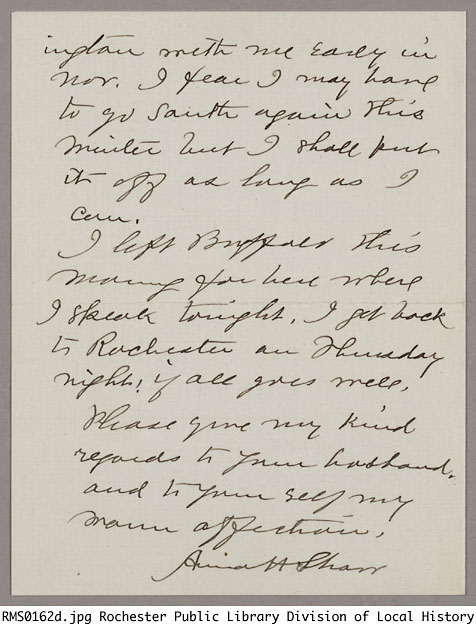 ington with me early in
Nov. I fear I may have
to go South again this
winter but I shall put
it off as long as I
can.
I left Buffalo this
morning for here where
I speak tonight. I get back
to Rochester on Thursday
night, if all goes well.
Please give my kind
regards to your husband.
and to your self my
warm affection.
Anna H Shaw
RMS0162d.jpg Rochester Public Library Division of Local History